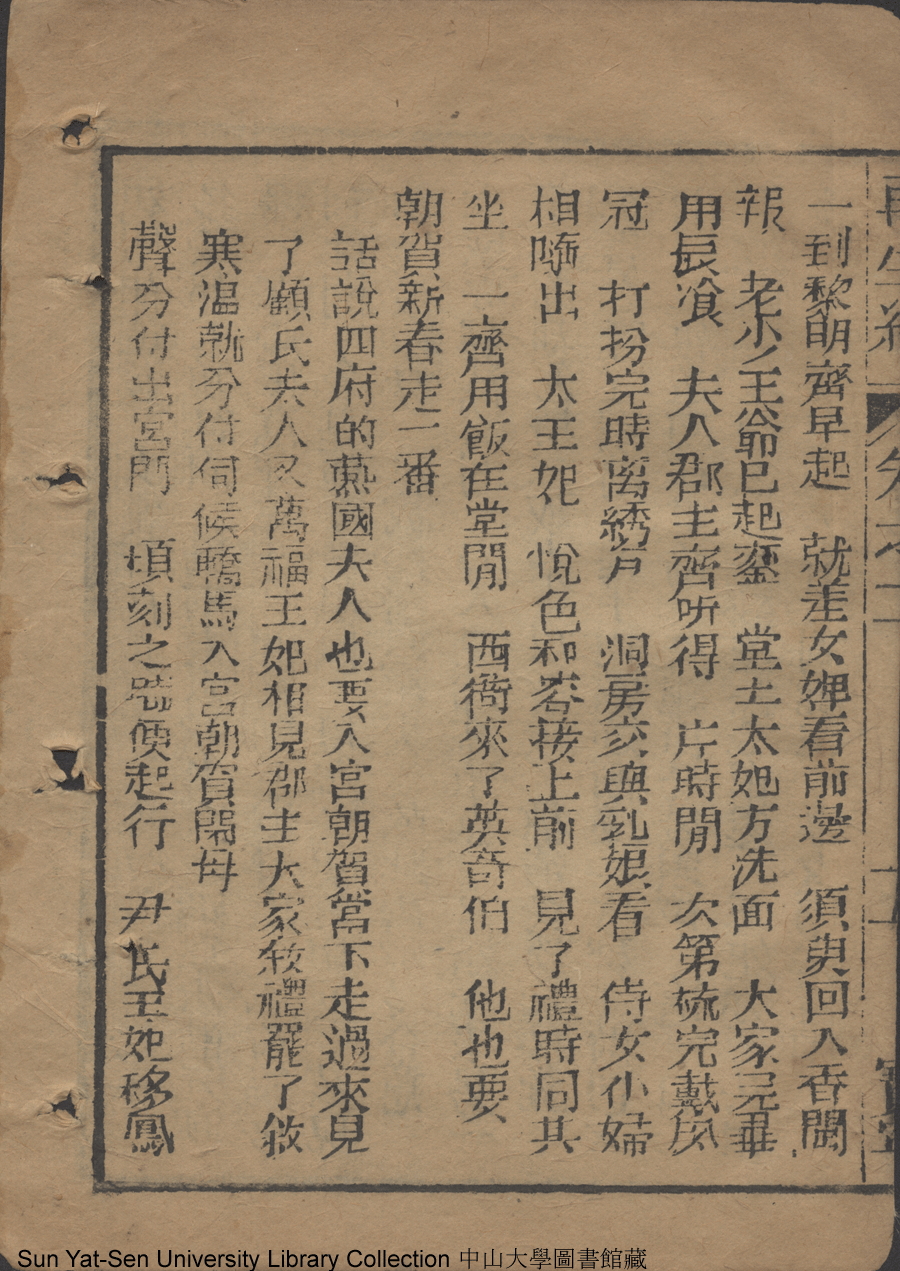 再生緣 卷之二 寶堂
一到黎明齊早起 就差女婢看前邊 須臾回入香閨
報 老少王爺已起鑾 堂上太妃方洗面 大家完畢
用晨飡 夫人郡主齊听得 片時閒 次第梳完戴鳳
冠 打扮完時离綉戶 洞房交與乳娘看 侍女仆婦
相隨出 太王妃 悅色和容接上前 見了禮時同共
坐 一齊用飯在堂閒 西衙來了英奇伯 他也要
朝賀新春走一番
話說四府的燕國夫人也要入宮朝賀當下走過來見
了顧氏夫人又萬福王妃相見郡主大家敘禮罷了敘
寒溫就分付伺候轎馬入宮朝賀閤母
聲分付出宮門 頃刻之時便起行 尹氏王妃移鳳
Sun Yat-Sen University Library Collection 中山大學圖書館藏